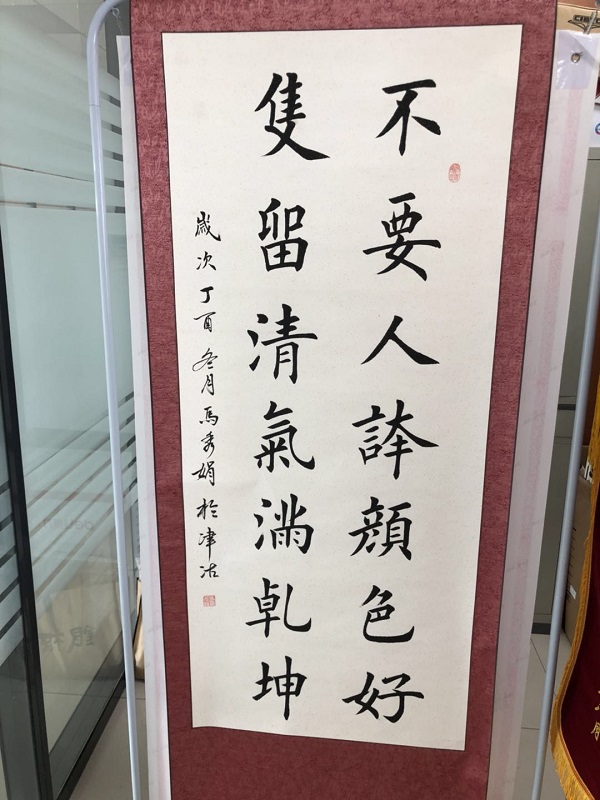 不要人誇顔色好
隻留清氣滿乾坤
歲次丁酉冬月馬秀娟於津沽